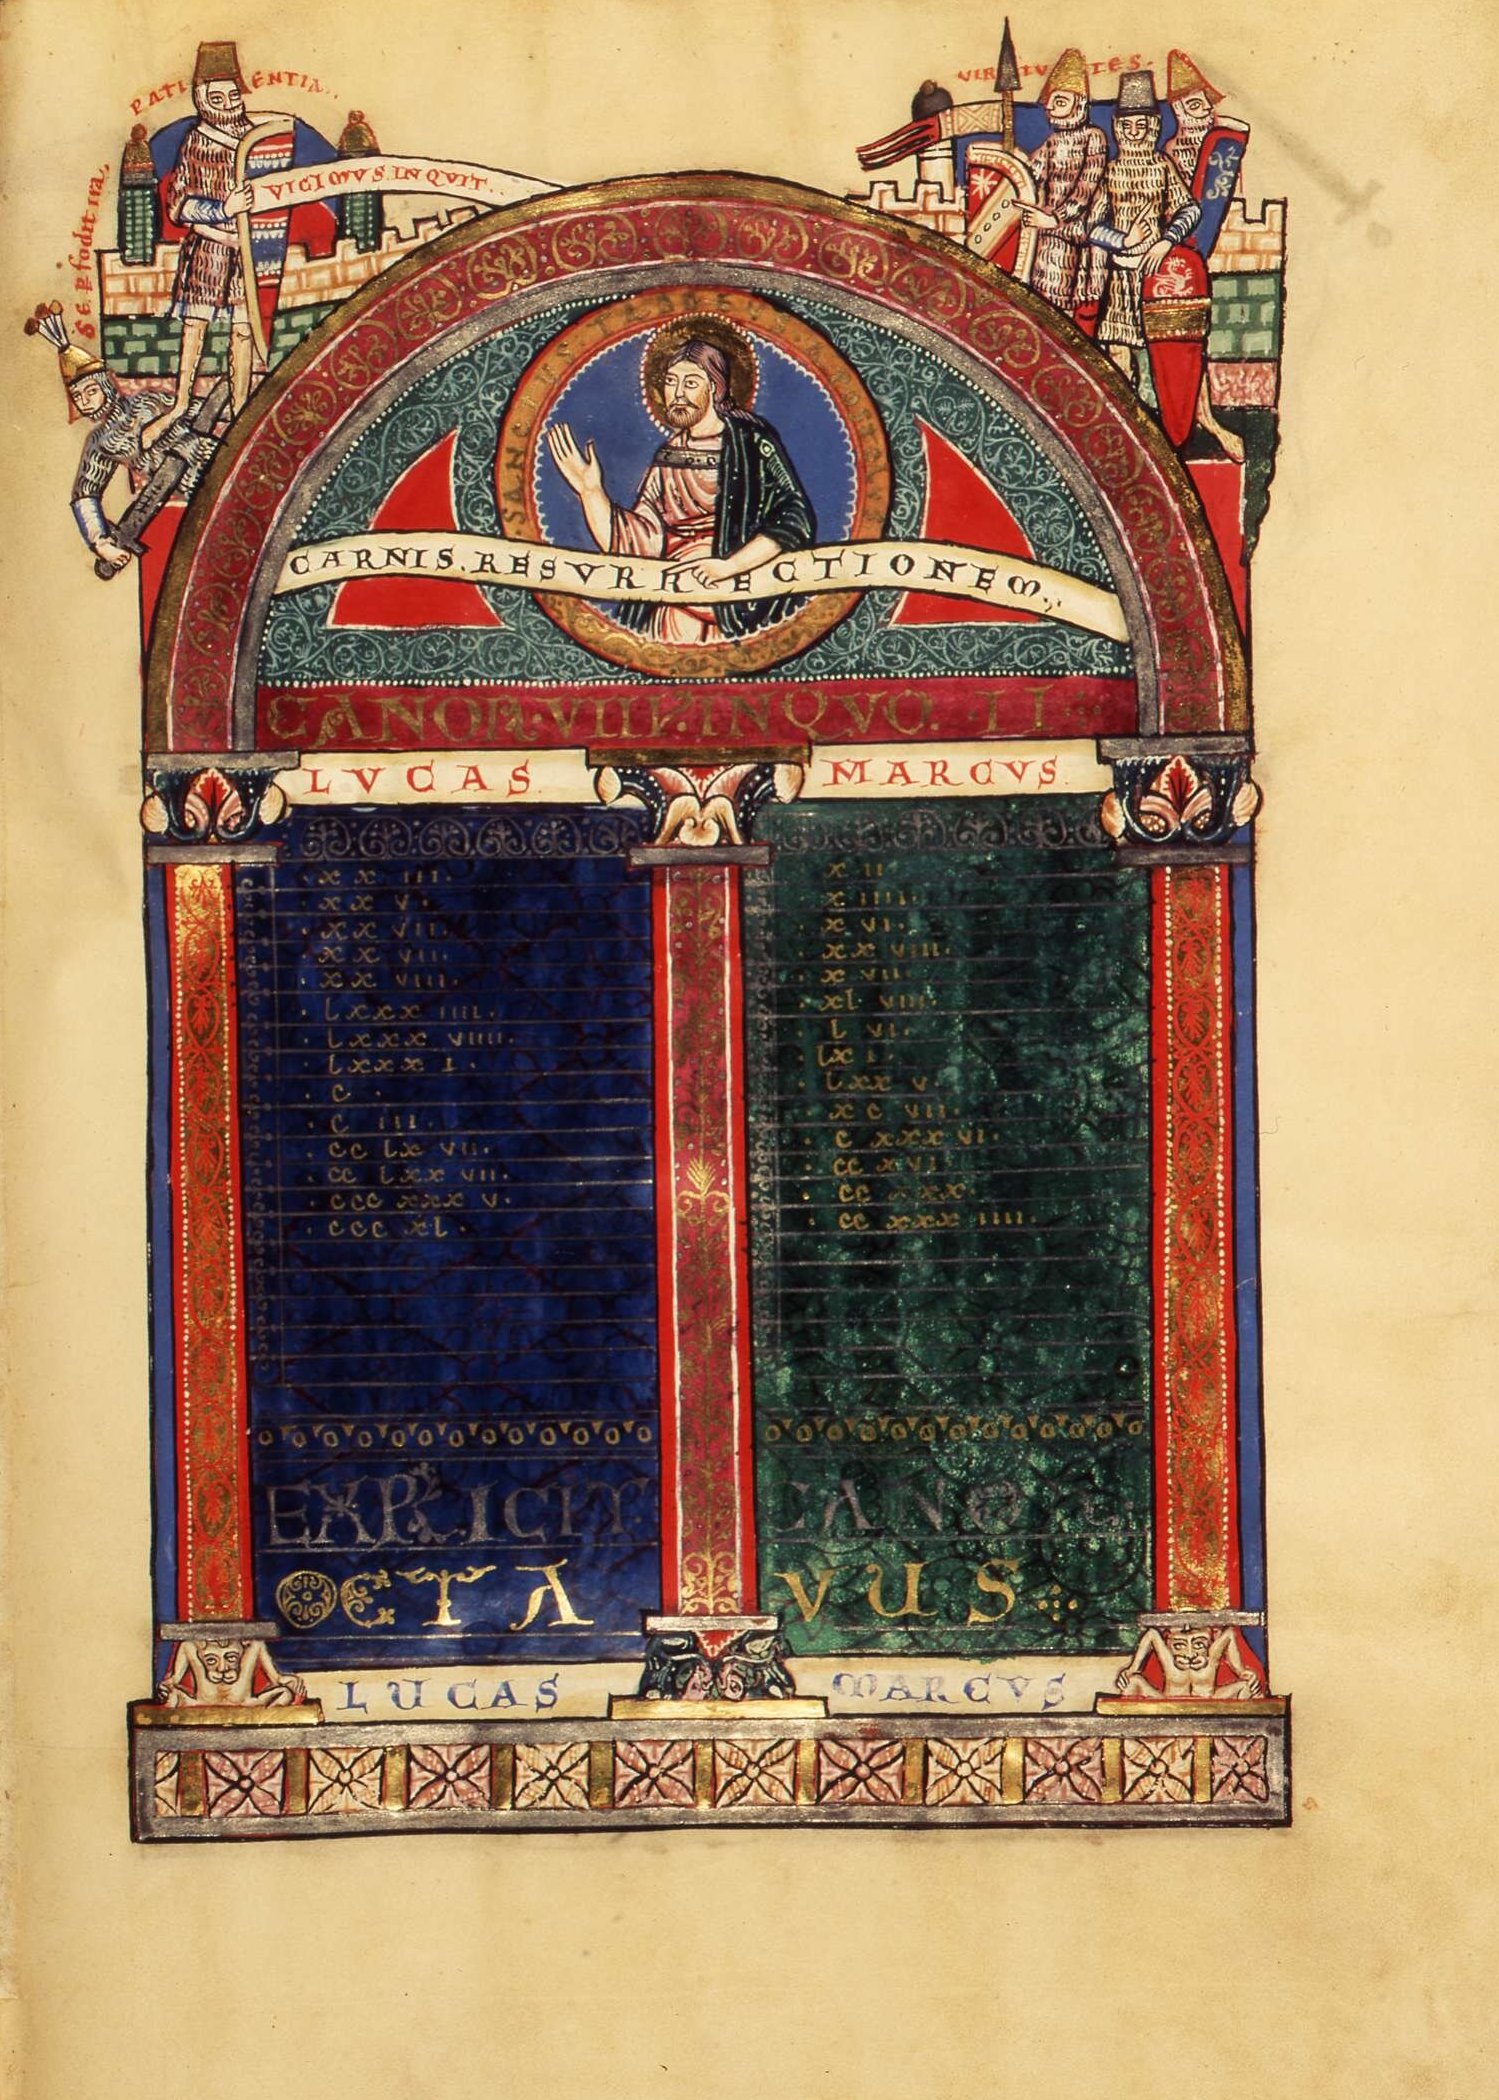 PATIENTIA.
VIRTUTES.
SE PFODIT IRA.
VICIMVS.INQVIT.
SANCTUS TADDEUS APOSTOLUS
CARNIS.RESVRRECTIONEM.
CANON.VIII.INQVO.II
LVCAS
MARCVS
.xx iii.
.xx v.
.xx vii.
.xx viii.
.xx viiii.
.lxxx iiii.
.lxxx viiii.
.lxxx i.
.c.
.c iii.
.cc lx vii.
.cc lxx vii.
.ccc xxx v.
.ccc xl.
.x ii.
.x iiii.
.x vi.
.xx viii.
.x vii.
.xl viii.
.l vi.
.lx i.
.lxx v.
.xc vii.
.c xxx vi.
.cc xvi.
.cc xxx.
.cc xxx iiii.
EXPLICIT CANON
OCTAVUS
LUCAS
MARCVS